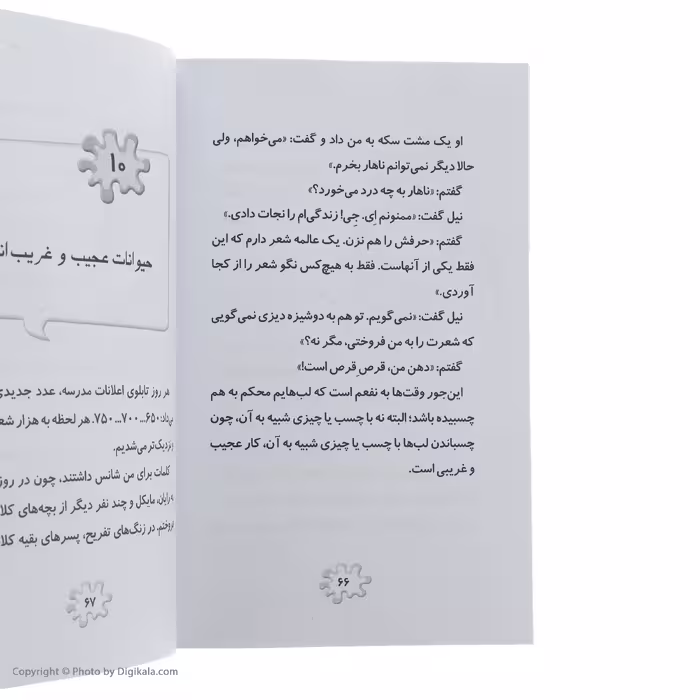 او یک مشت سکه به من داد و گفت: «می‌خواهم، ولی
حالا دیگر نمی‌توانم ناهار بخرم.»
گفتم: «ناهار به چه درد می‌خورد؟»
نیل گفت: «ممنونم اِی. جِی! زندگی‌ام را نجات دادی.»
گفتم: «حرفش را هم نزن. یک عالمه شعر دارم که این
فقط یکی از آنهاست. فقط به هیچ‌کس نگو شعر را از کجا
آوردی.»
نیل گفت: «نمی‌گویم. تو هم به دوشیزه دیزی نمی‌گویی
که شعرت را به من فروختی، مگر نه؟»
گفتم: «دهن من، قرصِ قرص است!»
این‌جور وقت‌ها به نفعم است که لب‌هایم محکم به هم
چسبیده باشد؛ البته نه با چسب یا چیزی شبیه به آن، چون
چسباندن لب‌ها با چسب یا چیزی شبیه به آن، کار عجیب
و غریبی است.
۶۶
۱۰
حیوانات عجیب و غریب
هر روز تابلوی اعلانات مدرسه، عدد جدیدی
۶۵۰...۷۰۰...۷۵۰. هر لحظه به هزار
نزدیک‌تر می‌شدیم.
کلمات برای من شانس داشتند، چون در روز
رایان، مایکل و چند نفر دیگر از بچه‌های
در زنگ‌های تفریح، پسرهای بقیه
۶۷
Copyright © Photo by Digikala.com